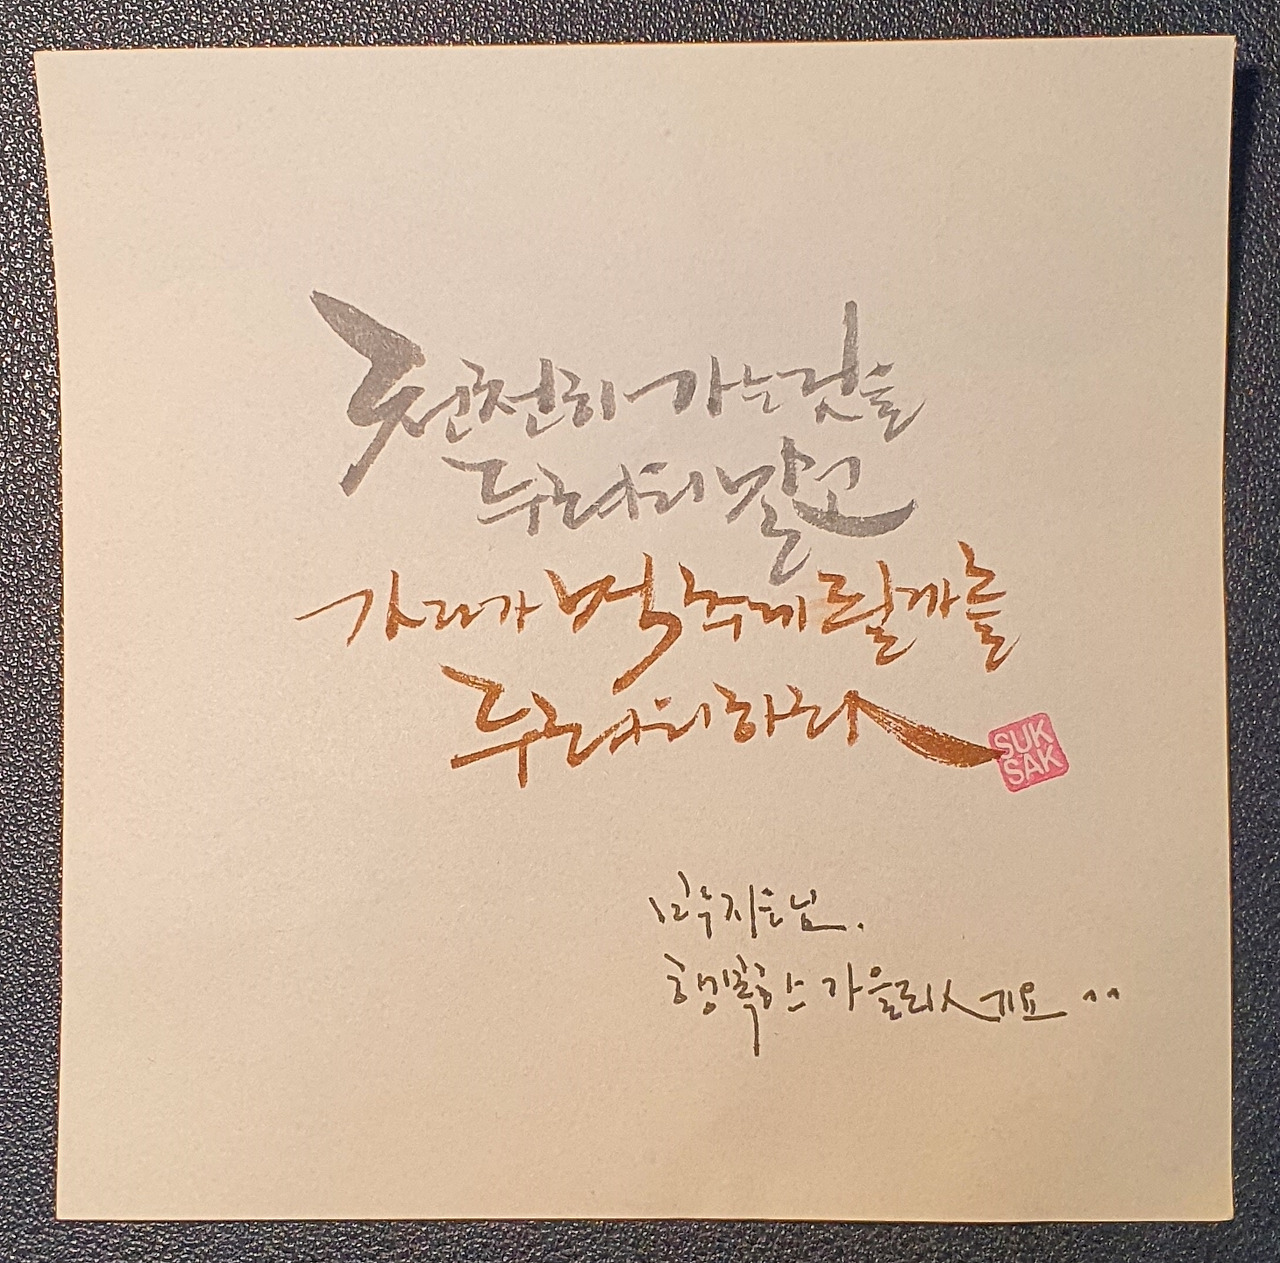 천천히 가는것을
두려워 말고
가다가 멈추게 될까를
두려워하라
SUK
SAK
님.
행복한 가을되세요 ^^